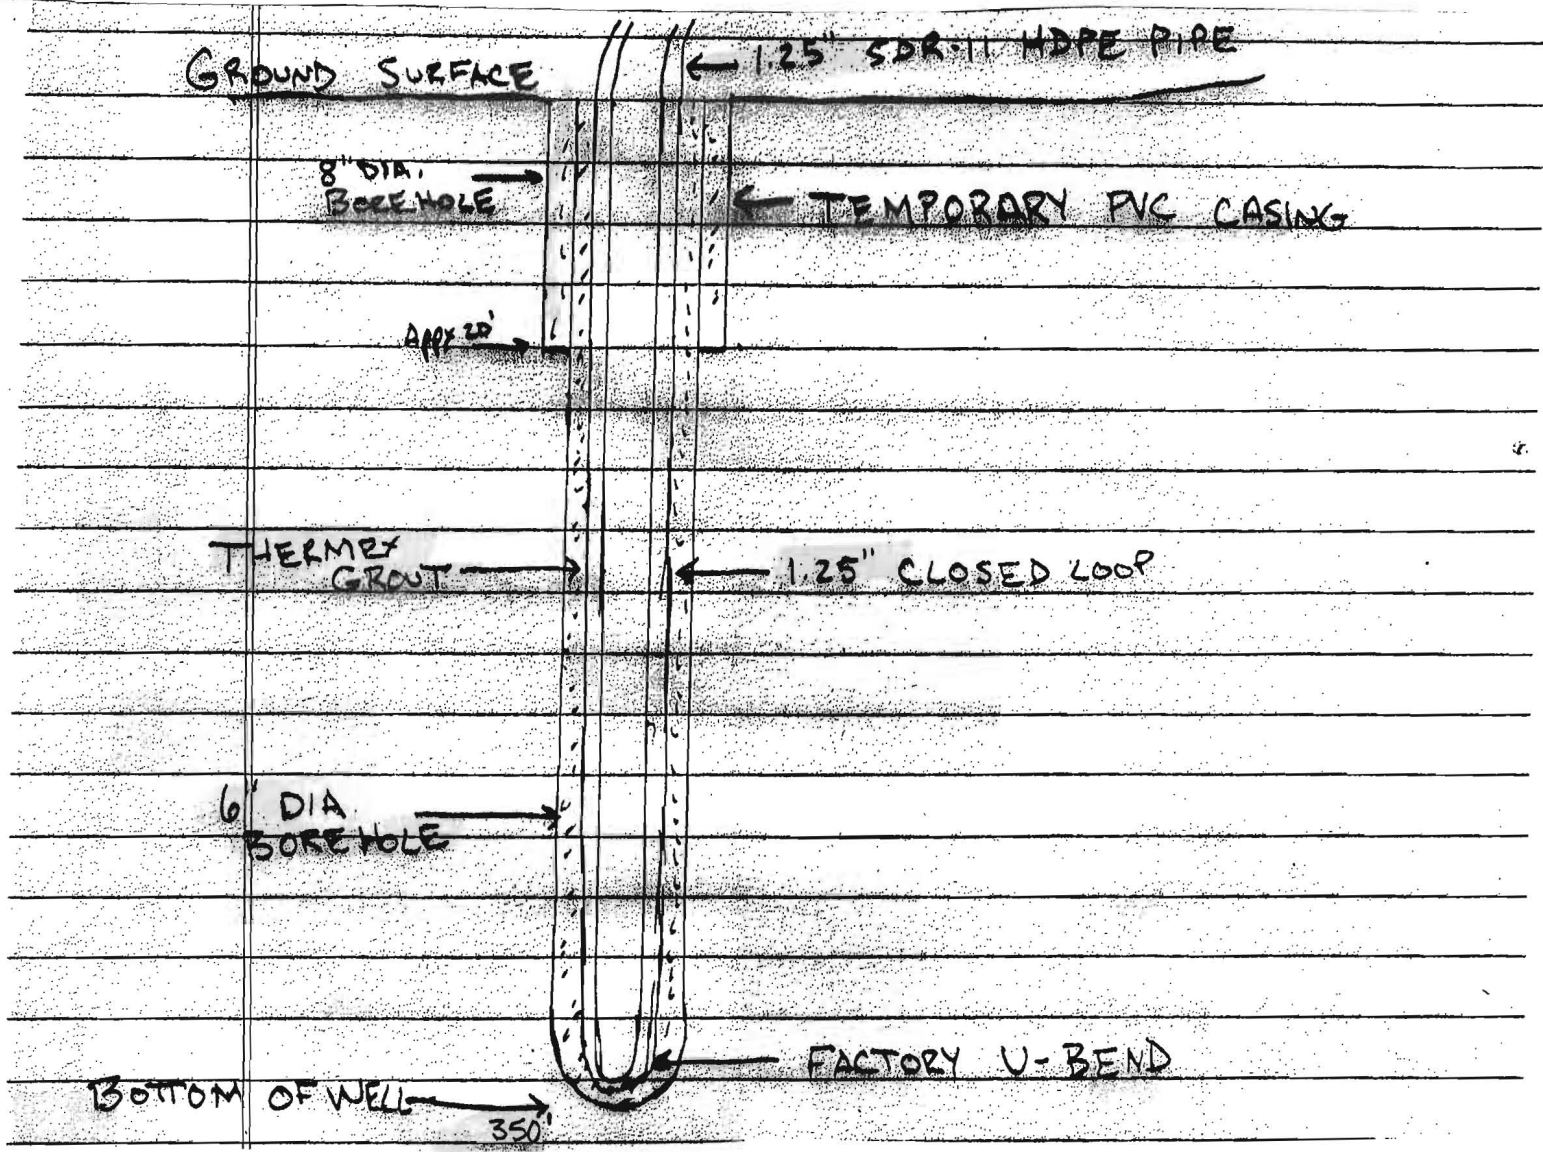 1.25" SDR-11 HDPE PIPE
GROUND SURFACE
8" DIA.
BOREHOLE
TEMPORARY PVC CASING
Appx 20'
THERMEX
GROUT
1.25" CLOSED LOOP
6" DIA
BOREHOLE
FACTORY U-BEND
BOTTOM OF WELL
350'